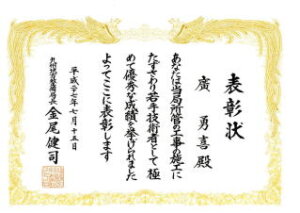 表彰状
廣 勇喜 殿
あなたは当局所管の工事の施工に
たずさわり若手技術者として極
めて優秀な成績を挙げられました
よってここに表彰します
平成二十七年七月十五日
九州地方整備局長 金尾健司